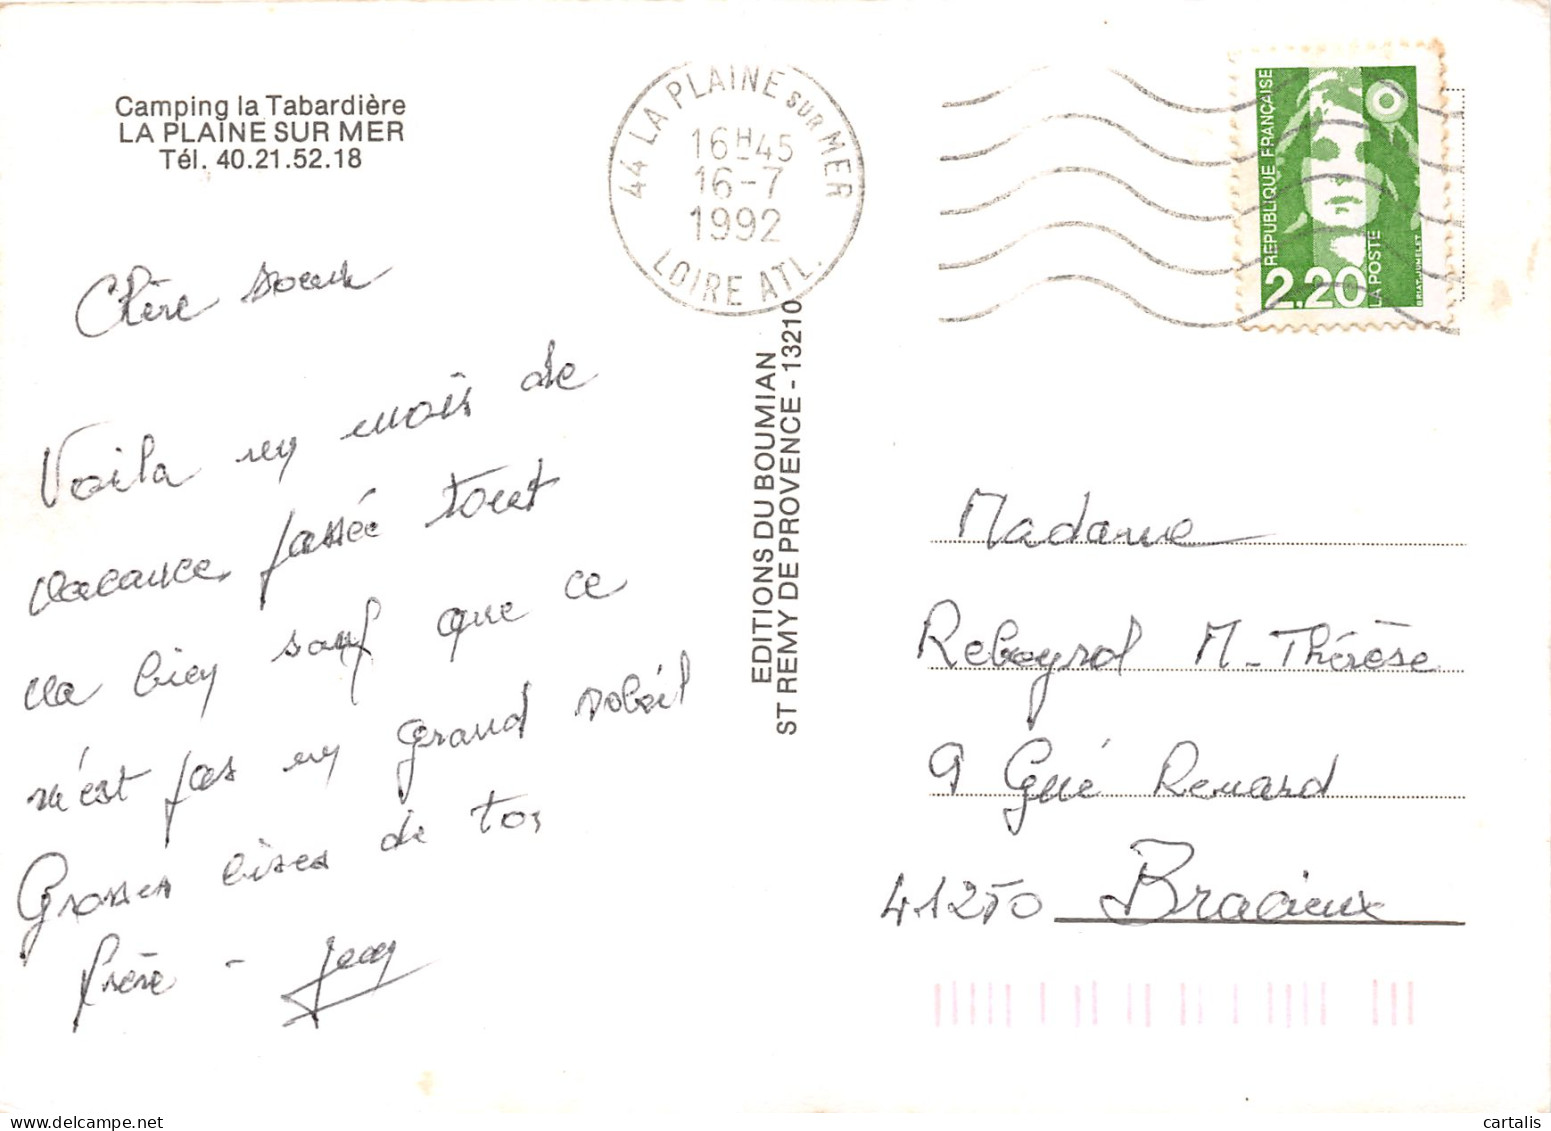 Camping la Tabardière
LA PLAINE SUR MER
Tél. 40.21.52.18
44 LA PLAINE SUR MER
16H45
16-7
1992
LOIRE ATL.
REPUBLIQUE FRANÇAISE
2,20
LA POSTE
BRIAT-JUMELET
Chère soeur
Voila un mois de
vacances passée tout
va bien sauf que ce
n'est pas un grand soleil
Grosses bises de ton
frère - Jean
EDITIONS DU BOUMIAN
ST REMY DE PROVENCE - 13210
Madame
Rebeyrol M-Thérèse
9 Gué Renard
41250 Bracieux
cartalis